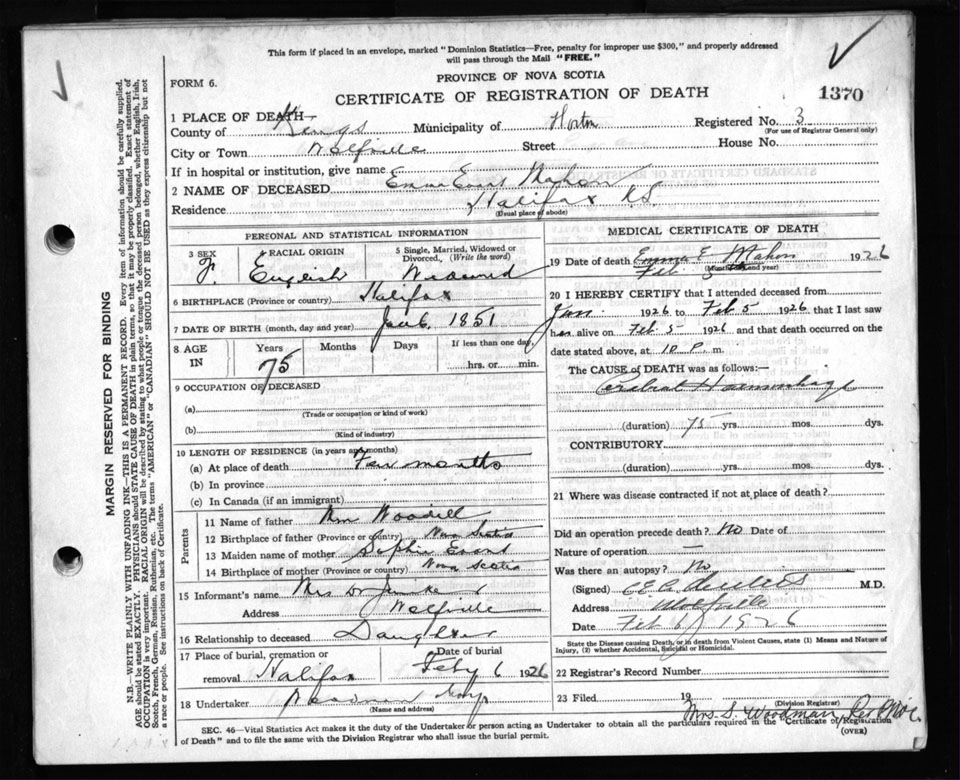 This form if placed in an envelope, marked "Dominion Statistics—Free, penalty for improper use $300," and properly addressed
will pass through the Mail "FREE."
PROVINCE OF NOVA SCOTIA
FORM 6.
CERTIFICATE OF REGISTRATION OF DEATH
1370
1 PLACE OF DEATH
County of Kings Municipality of Horton Registered No. 3
(For use of Registrar General only)
City or Town Wolfville Street House No.
If in hospital or institution, give name
2 NAME OF DECEASED Emma Evart Mahon
Residence Halifax N.S.
(Usual place of abode)
PERSONAL AND STATISTICAL INFORMATION
3 SEX F. 4 RACIAL ORIGIN English 5 Single, Married, Widowed or Divorced, (Write the word) Widowed
6 BIRTHPLACE (Province or country) Halifax
7 DATE OF BIRTH (month, day and year) Jan 6, 1851
8 AGE IN Years 75 Months Days If less than one day, hrs. or min.
9 OCCUPATION OF DECEASED
(a)
(Trade or occupation or kind of work)
(b)
(Kind of industry)
10 LENGTH OF RESIDENCE (in years and months)
(a) At place of death Few months
(b) In province
(c) In Canada (if an immigrant)
Parents
11 Name of father Wm Woodill
12 Birthplace of father (Province or country) Nova Scotia
13 Maiden name of mother Sophia Evart
14 Birthplace of mother (Province or country) Nova Scotia
15 Informant's name Mrs Dr
Address Wolfville
16 Relationship to deceased Daughter
17 Place of burial, cremation or removal Halifax Date of burial Feby 6 1926
18 Undertaker
(Name and address)
MEDICAL CERTIFICATE OF DEATH
19 Date of death Emma E Mahon 1926
Feb 5
(Month day and year)
20 I HEREBY CERTIFY that I attended deceased from
Jan. 1926 to Feb 5 1926 that I last saw
her alive on Feb 5 1926 and that death occurred on the
date stated above, at 10 P. m.
The CAUSE OF DEATH was as follows:—
Cerebral Haemorrhage
(duration) 75 yrs. mos. dys.
CONTRIBUTORY
(duration) yrs. mos. dys.
21 Where was disease contracted if not at place of death?
Did an operation precede death? No Date of
Nature of operation —
Was there an autopsy? No
(Signed) M.D.
Address Wolfville
Date Feb 6/1926
State the Disease causing Death, or in death from Violent Causes, state (1) Means and Nature of
Injury, (2) whether Accidental, Suicidal or Homicidal.
22 Registrar's Record Number
23 Filed 19
(Division Registrar)
Mrs. S. Woodman
SEC. 46—Vital Statistics Act makes it the duty of the Undertaker or person acting as Undertaker to obtain all the particulars required in the "Certificate of Registration
of Death" and to file the same with the Division Registrar who shall issue the burial permit.
(OVER)
MARGIN RESERVED FOR BINDING
N.B.—WRITE PLAINLY WITH UNFADING INK—THIS IS A PERMANENT RECORD. Every item of information should be carefully supplied.
AGE should be stated EXACTLY. PHYSICIANS should STATE CAUSE OF DEATH in plain terms, so that it may be properly classified. Exact statement of
OCCUPATION is very important. RACIAL ORIGIN will be described by stating to what people or tongue the deceased person belonged, whether English, Irish,
Scotch, French, German, Russian, Ruthenian, etc. The terms "AMERICAN" or "CANADIAN" SHOULD NOT BE USED as they express citizenship but not
a race or people. See instructions on back of Certificate.